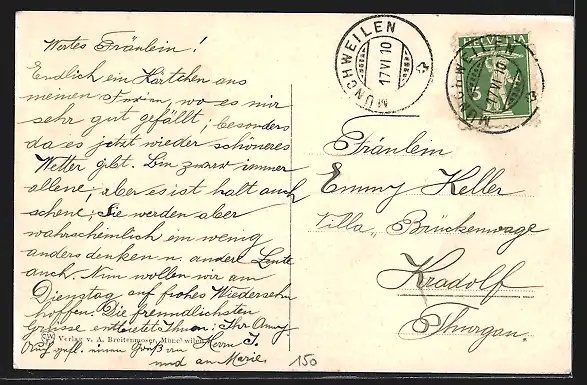 Wertes Fräulein!
Endlich ein Kärtchen aus
meinen Ferien, wo es mir
sehr gut gefällt; besonders
da es jetzt wieder schöneres
Wetter gibt. Bin zwar immer
alleine, aber es ist halt auch
schöne; Sie werden aber
wahrscheinlich ein wenig
anders denken u. andere Leute
auch. Nun wollen wir am
Dienstag auf frohes Wiedersehn
hoffen. Die freundlichsten
Grüsse entbietet Ihnen: Ihr
Verlag v. A. Breitenmoser, Münchwilen
Herrn J.
und an Marie
MÜNCHWEILEN
17 VI 10
HELVETIA
5
MÜNCHWEILEN
17 VI 10
Fräulein
Emmy Keller
Villa „Brückenwage
Kradolf
Thurgau.
150